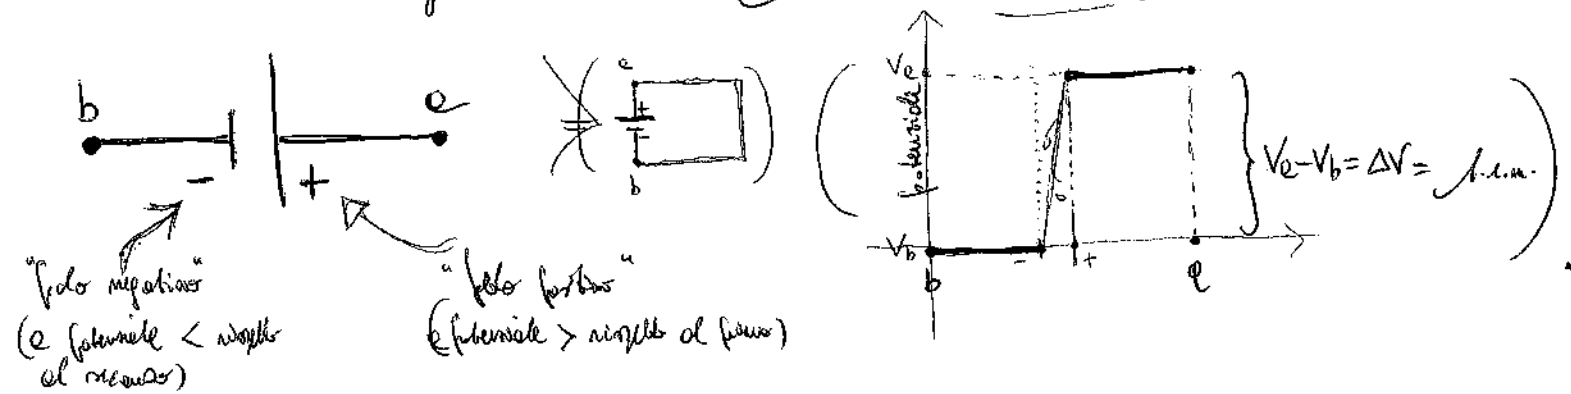 b
a
-
+
"Polo negativo"
(a potenziale < rispetto
al secondo)
"Polo positivo"
(a potenziale > rispetto al primo)
a
+
-
b
potenziale
Va
Vb
b
-
+
a
Va-Vb = ΔV = f.e.m.